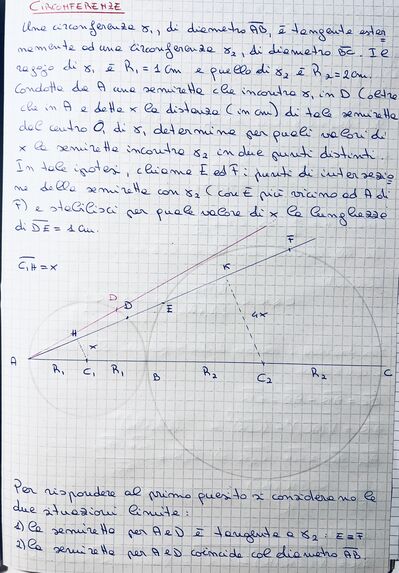 CIRCONFERENZE
Una circonferenza γ₁, di diametro A̅B̅, è tangente ester
namente ad una circonferenza γ₂, di diametro B̅C̅. Il
raggio di γ₁ è R₁ = 1 cm e quello di γ₂ è R₂ = 2 cm.
Condotta da A una semiretta che incontra γ₁ in D (oltre
che in A e detta x la distanza (in cm) di tale semiretta
dal centro O₁ di γ₁, determina per quali valori di
x la semiretta incontra γ₂ in due punti distinti.
In tale ipotesi, chiama E ed F i punti di intersezio
ne della semiretta con γ₂ (con E più vicino ad A di
F) e stabilisci per quale valore di x la lunghezza
di D̅E̅ = 1 cm.
C̅₁H̅ = x
F
K
D
D
E
H
x
4x
A
R₁
C₁
R₁
B
R₂
C₂
R₂
C
Per rispondere al primo quesito si considerano le
due situazioni limite:
1) la semiretta per A e D è tangente a γ₂ : E ≡ F
2) la semiretta per A e D coincide col diametro A̅B̅.